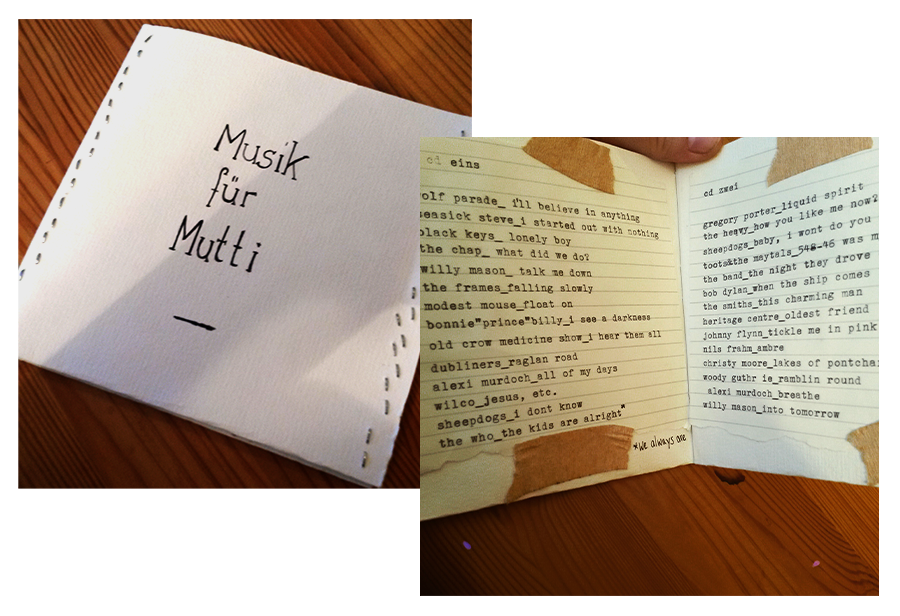 Musik
für
Mutti
cd eins
wolf parade_ i'll believe in anything
seasick steve_i started out with nothing
black keys_ lonely boy
the chap_ what did we do?
willy mason_ talk me down
the frames_falling slowly
modest mouse_float on
bonnie"prince"billy_i see a darkness
old crow medicine show_i hear them all
dubliners_raglan road
alexi murdoch_all of my days
wilco_jesus, etc.
sheepdogs_i dont know
the who_the kids are alright*
*we always are
cd zwei
gregory porter_liquid spirit
the heavy_how you like me now?
sheepdogs_baby, i wont do you
toots&the maytals_548-46 was m
the band_the night they drove
bob dylan_when the ship comes
the smiths_this charming man
heritage centre_oldest friend
johnny flynn_tickle me in pink
nils frahm_ambre
christy moore_lakes of pontchai
woody guthr ie_ramblin round
alexi murdoch_breathe
willy mason_into tomorrow